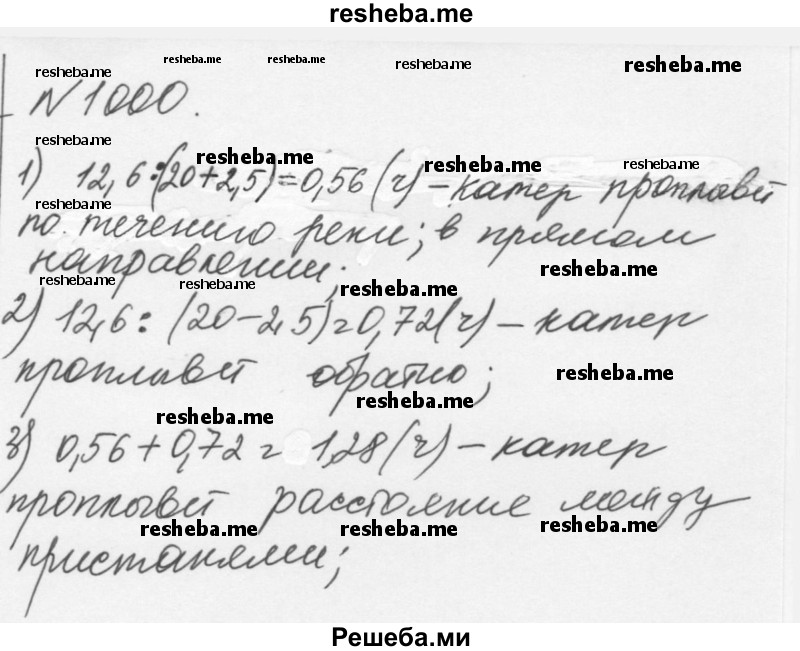 resheba.me
resheba.me resheba.me resheba.me resheba.me resheba.me
№1000.
resheba.me resheba.me resheba.me resheba.me
1) 12,6:(20+2,5)=0,56 (ч) – катер проплывёт
resheba.me
по течению реки; в прямом
направлении;
resheba.me
resheba.me resheba.me resheba.me
2) 12,6: (20-2,5)=0,72(ч) – катер
проплывёт обратно;
resheba.me
resheba.me
resheba.me
3) 0,56+0,72 = 1,28(ч) – катер
проплывёт расстояние между
resheba.me resheba.me resheba.me
пристанями;
Решеба.ми